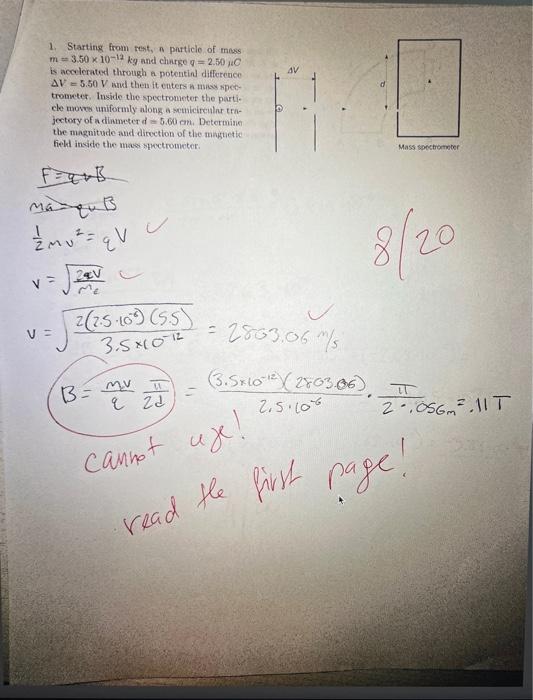 1. Starting from rest, a particle of mass
m = 3.50 × 10⁻¹² kg and charge q = 2.50 μC
is accelerated through a potential difference
ΔV = 5.50 V and then it enters a mass spec-
trometer. Inside the spectrometer the parti-
cle moves uniformly along a semicircular tra-
jectory of a diameter d = 5.60 cm. Determine
the magnitude and direction of the magnetic
field inside the mass spectrometer.
ΔV
d
Mass spectrometer
F=qvB
ma=qvB
½mv²=qV
8/20
v=√(2qV/Me)
v=√(2(2.5·10⁻⁶)(5.5)/3.5×10⁻¹²) = 2803.06 m/s
B = mv/q π/2d = (3.5×10⁻¹²)(2803.06)/2.5·10⁻⁶ · π/2·.056m = .11 T
cannot use!
read the first page!